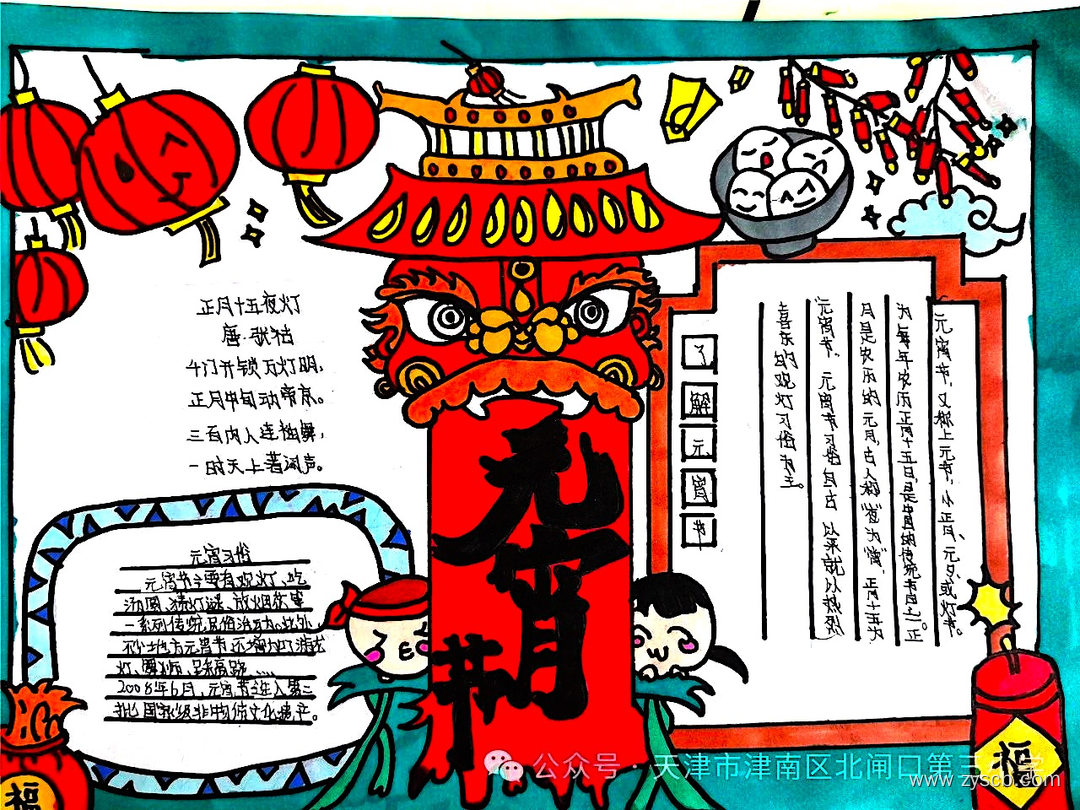 正月十五夜灯
唐·张祜
千门开锁万灯明,
正月中旬动帝京。
三百内人连袖舞,
一时天上著词声。
元宵习俗
元宵节主要有观灯、吃
汤圆、猜灯谜、放烟花等
一系列传统民俗活动。此外,
不少地方元宵节还增加了游龙
灯、舞狮、踩高跷……
2008年6月,元宵节入选第二
批国家级非物质文化遗产。
元宵节
了解元宵节
元宵节,又称上元节,小正月、元夕或灯节。
为每年农历正月十五日,是中国的传统节日之一。正
月是农历的元月,古人称"夜"为"宵",正月十五为
元宵节。元宵节习俗自古以来就以热烈
喜庆的观灯习俗为主。
福
福
公众号·天津市津南区北闸口第三小学
www.zyscb.com